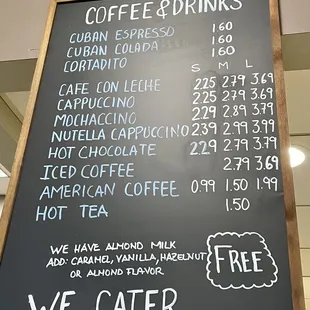 COFFEE & DRINKS
CUBAN ESPRESSO 1.60
CUBAN COLADA 1.60
CORTADITO 1.60
S M L
CAFE CON LECHE 2.25 2.79 3.69
CAPPUCCINO 2.25 2.79 3.69
MOCHACCINO 2.29 2.89 3.79
NUTELLA CAPPUCCINO 2.39 2.99 3.99
HOT CHOCOLATE 2.29 2.79 3.69
ICED COFFEE 2.79 3.69
AMERICAN COFFEE 0.99 1.50 1.99
HOT TEA 1.50
WE HAVE ALMOND MILK
ADD: CARAMEL, VANILLA, HAZELNUT
OR ALMOND FLAVOR
FREE
WE CATER